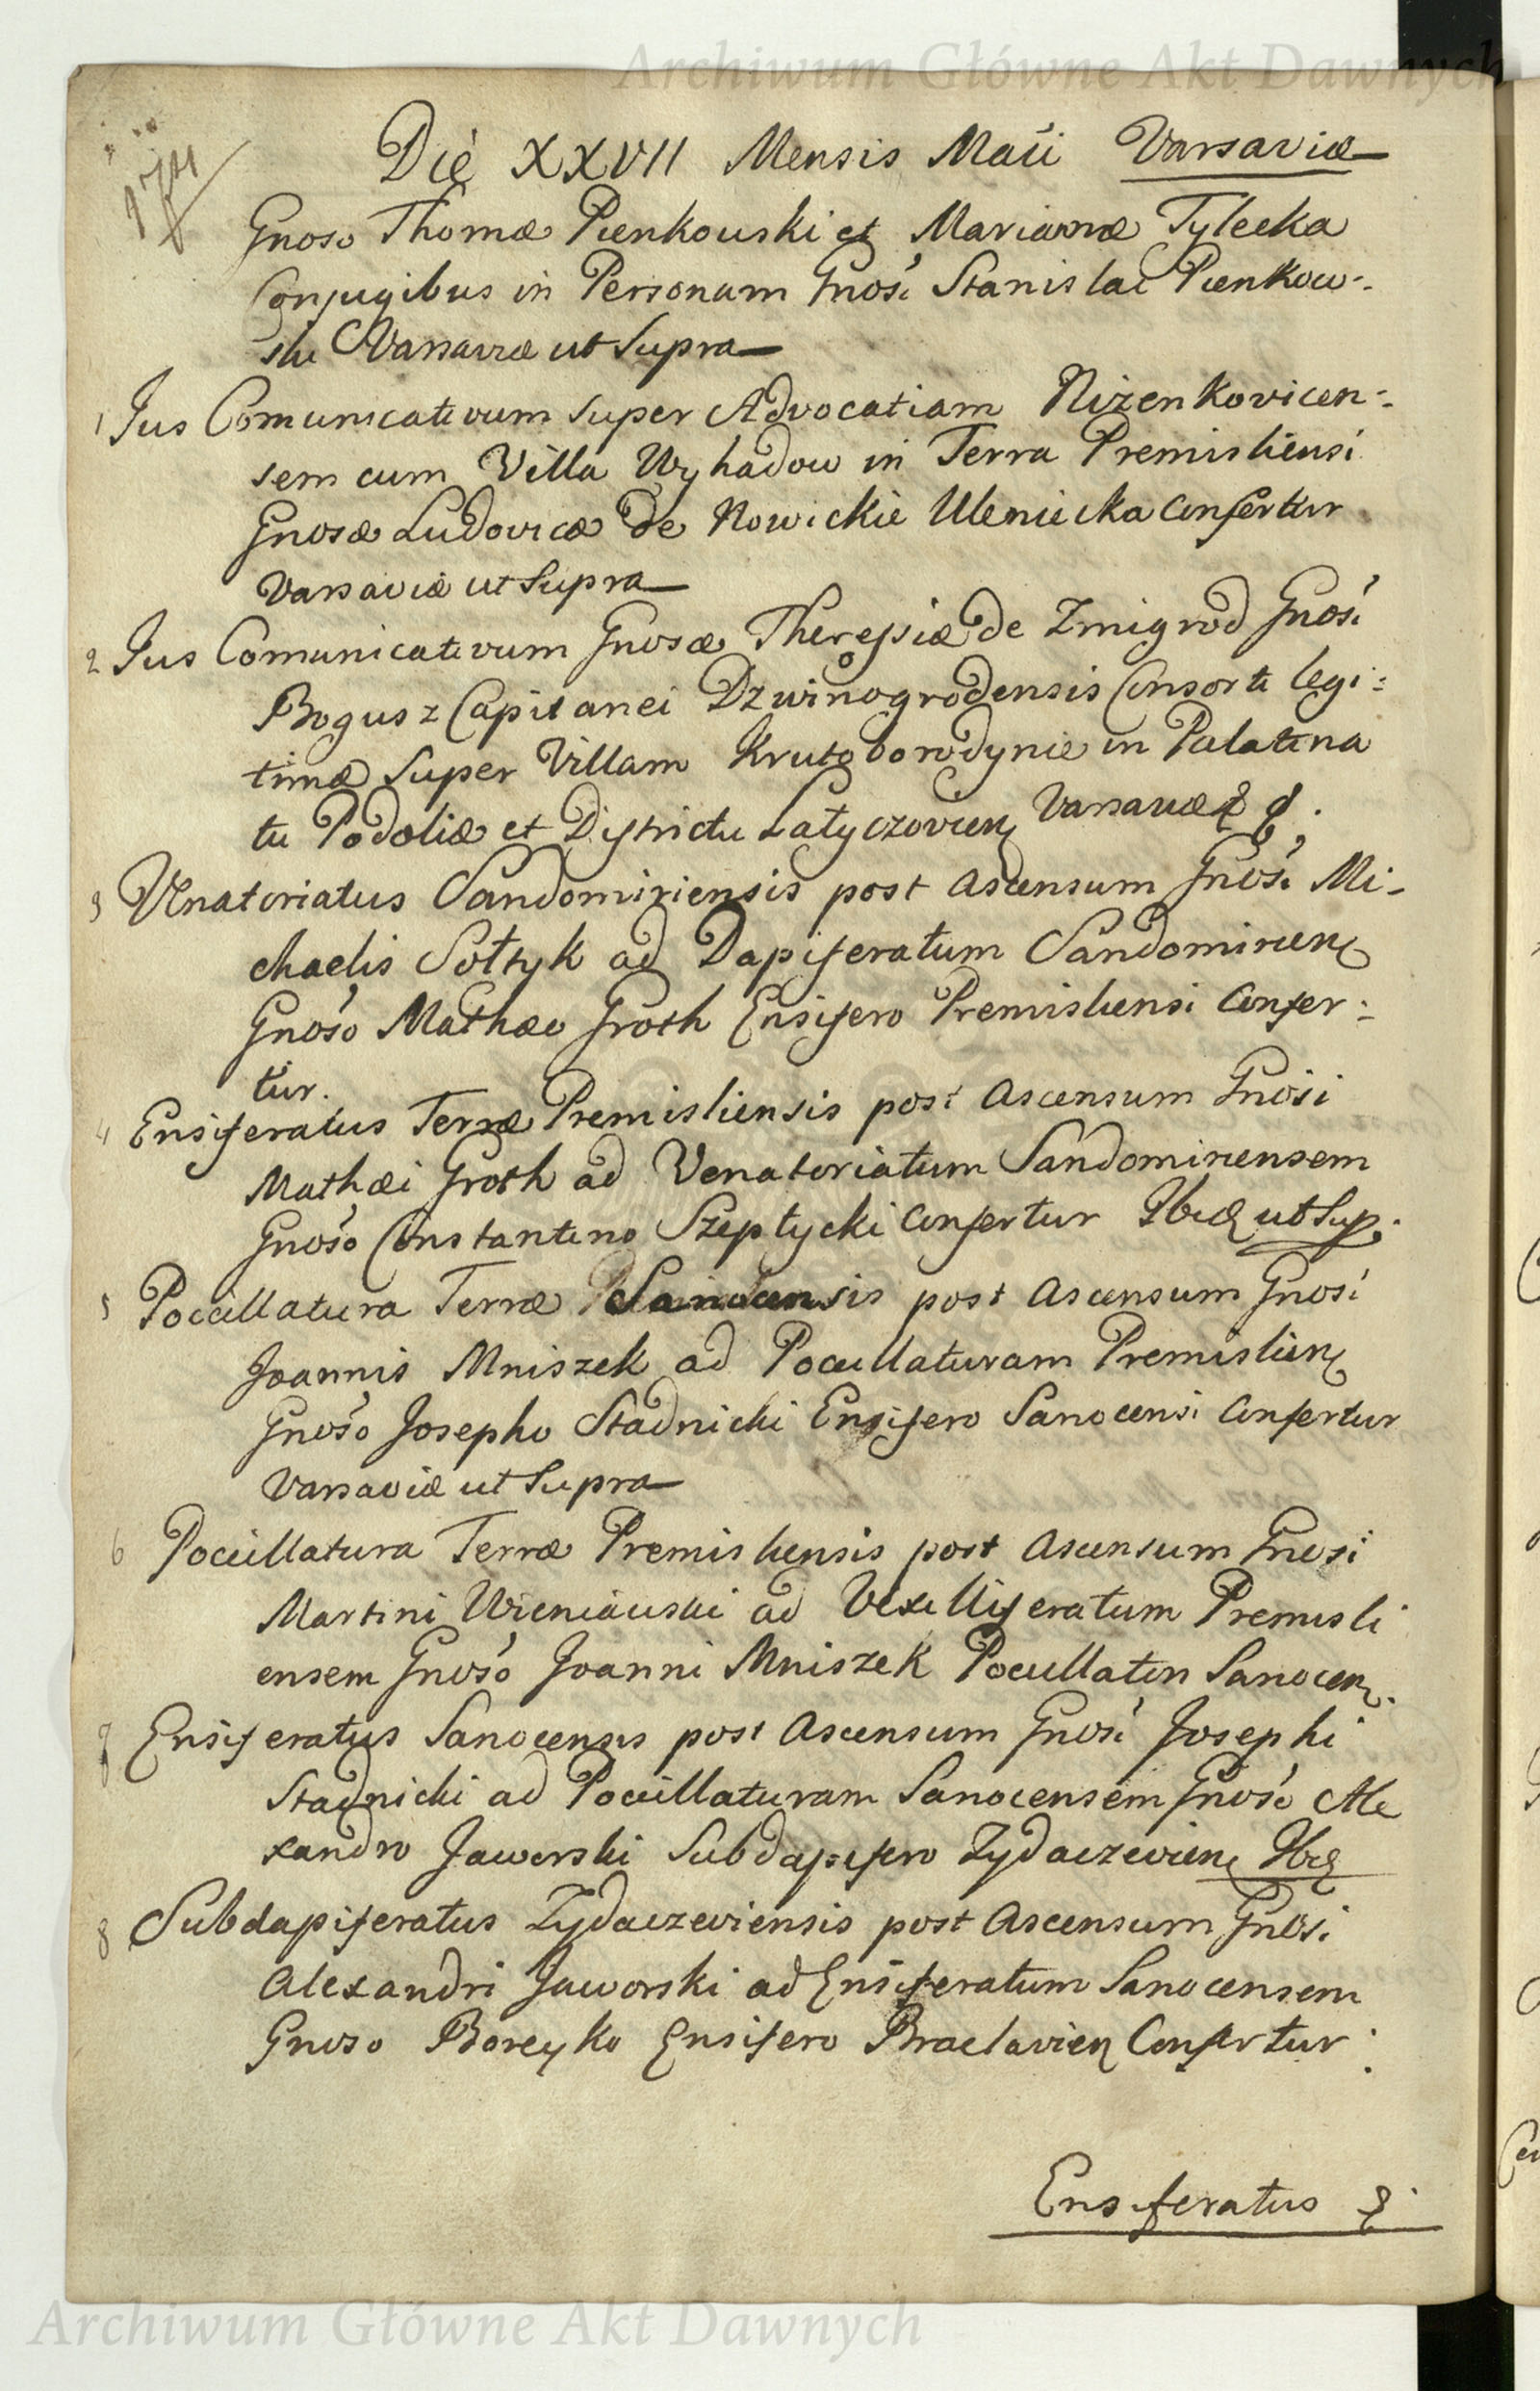 Archiwum Główne Akt Dawnych
174
Die XXVII Mensis Maii Varsaviæ
Gnoso Thomæ Pienkowski et Mariannæ Tylecka
Conjugibus in Personam Gnosi Stanislai Pienkow-
ski Varsaviæ ut Supra
1 Jus Comunicativum super Advocatiam Niżenkovicen-
sem cum Villa Wyhadow in Terra Premisliensi
Gnosæ Ludovicæ de Nowickie Uleniecka Confertur
Varsaviæ ut Supra
2 Jus Comunicativum Gnosæ Theresiæ de Zmigrod Gnosi
Bogusz Capitanei Dzwinogrodensis Consorti legi:
timæ super Villam Krutoborodynie in Palatina
tu Podoliæ et Districtu Latyczovien Varsaviæ
3 Venatoriatus Sandomiriensis post Ascensum Gnosi Mi-
chaelis Sołtyk ad Dapiferatum Sandomirien
Gnoso Mathæo Groth Ensifero Premisliensi Confer:
tur.
4 Ensiferatus Terræ Premisliensis post Ascensum Gnosi
Mathæi Groth ad Venatoriatum Sandomiriensem
Gnoso Constantino Szeptycki Confertur Ibid ut Sup.
5 Pocillatura Terræ Sanocensis post Ascensum Gnosi
Joannis Mniszek ad Pocillaturam Premislien
Gnoso Josepho Stadnicki Ensifero Sanocensi Confertur
Varsaviæ ut Supra
6 Pocillatura Terræ Premisliensis post Ascensum Gnosi
Martini Wieniawski ad Vexilliferatum Premisli
ensem Gnoso Joanni Mniszek Pocillatori Sanocen.
7 Ensiferatus Sanocensis post Ascensum Gnosi Josephi
Stadnicki ad Pocillaturam Sanocensem Gnoso Ale
xandro Jaworski Subdapifero Zydaczevien Ibid
8 Subdapiferatus Zydaczeviensis post Ascensum Gnosi
Alexandri Jaworski ad Ensiferatum Sanocensem
Gnoso Boreyko Ensifero Braclavien Confertur
Ensiferatus
Archiwum Główne Akt Dawnych